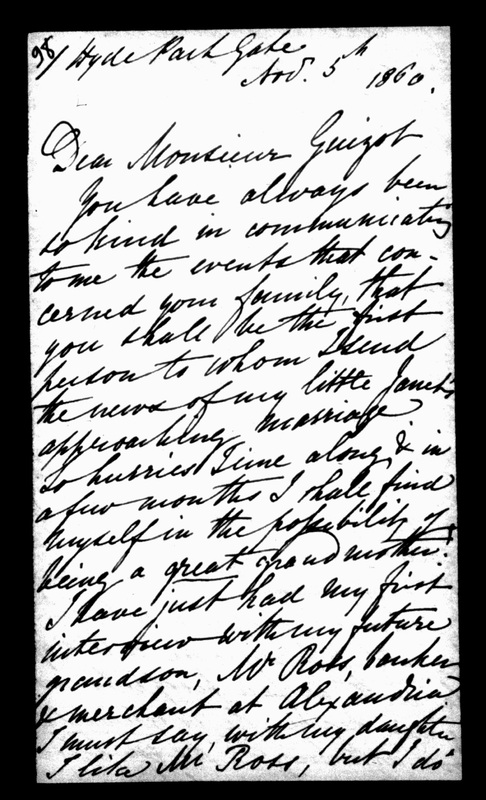 98/ Hyde Park Gate
Nov. 5th 1860.
Dear Monsieur Guizot
You have always been
so kind in communicating
to me the events that con-
cerned your family, that
you shall be the first
person to whom I send
the news of my little Janet's
approaching marriage
So hurries Time along, & in
a few months I shall find
myself in the possibility of
being a great grandmother!
I have just had my first
interview with my future
grandson, Mr Ross, banker
& merchant at Alexandria
I must say, with my daughter
I like Mr Ross, but I do